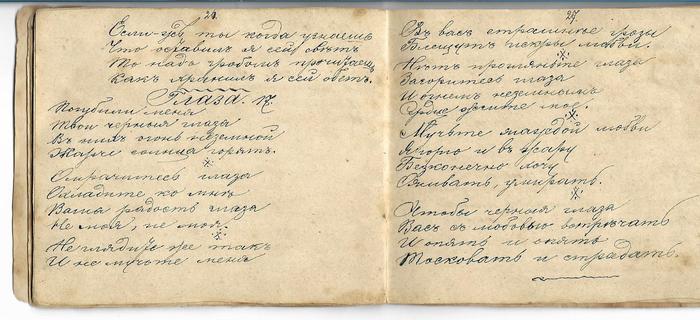 26.
Если-жъ ты когда узнаешь
Что оставилъ я сей свѣтъ
То надъ гробомъ прочитаешь
Какъ хранилъ я сей обетъ.
Глаза. 17.
Погубили меня
Твои черныя глаза
Въ нихъ огонь неземной
Жарче солнца горятъ.
Омрачитесь глаза
Охладите ко мнѣ
Ваша радость глаза
Не моя, не моя.
Не глядите же такъ
И не мучьте меня
27.
Въ васъ страшнѣе грозы
Блещутъ искры любви.
Нѣтъ прогляньте глаза
Загоритесь глаза
И огнемъ неземнымъ
Сердце жгите мое.
Мучьте жаждой любви
Я горю и въ жару
Безконечно хочу
Оживать, умирать.
Чтобы черныя глаза
Васъ съ любовью встрѣчать
И опять и опять
Тосковать и страдать.